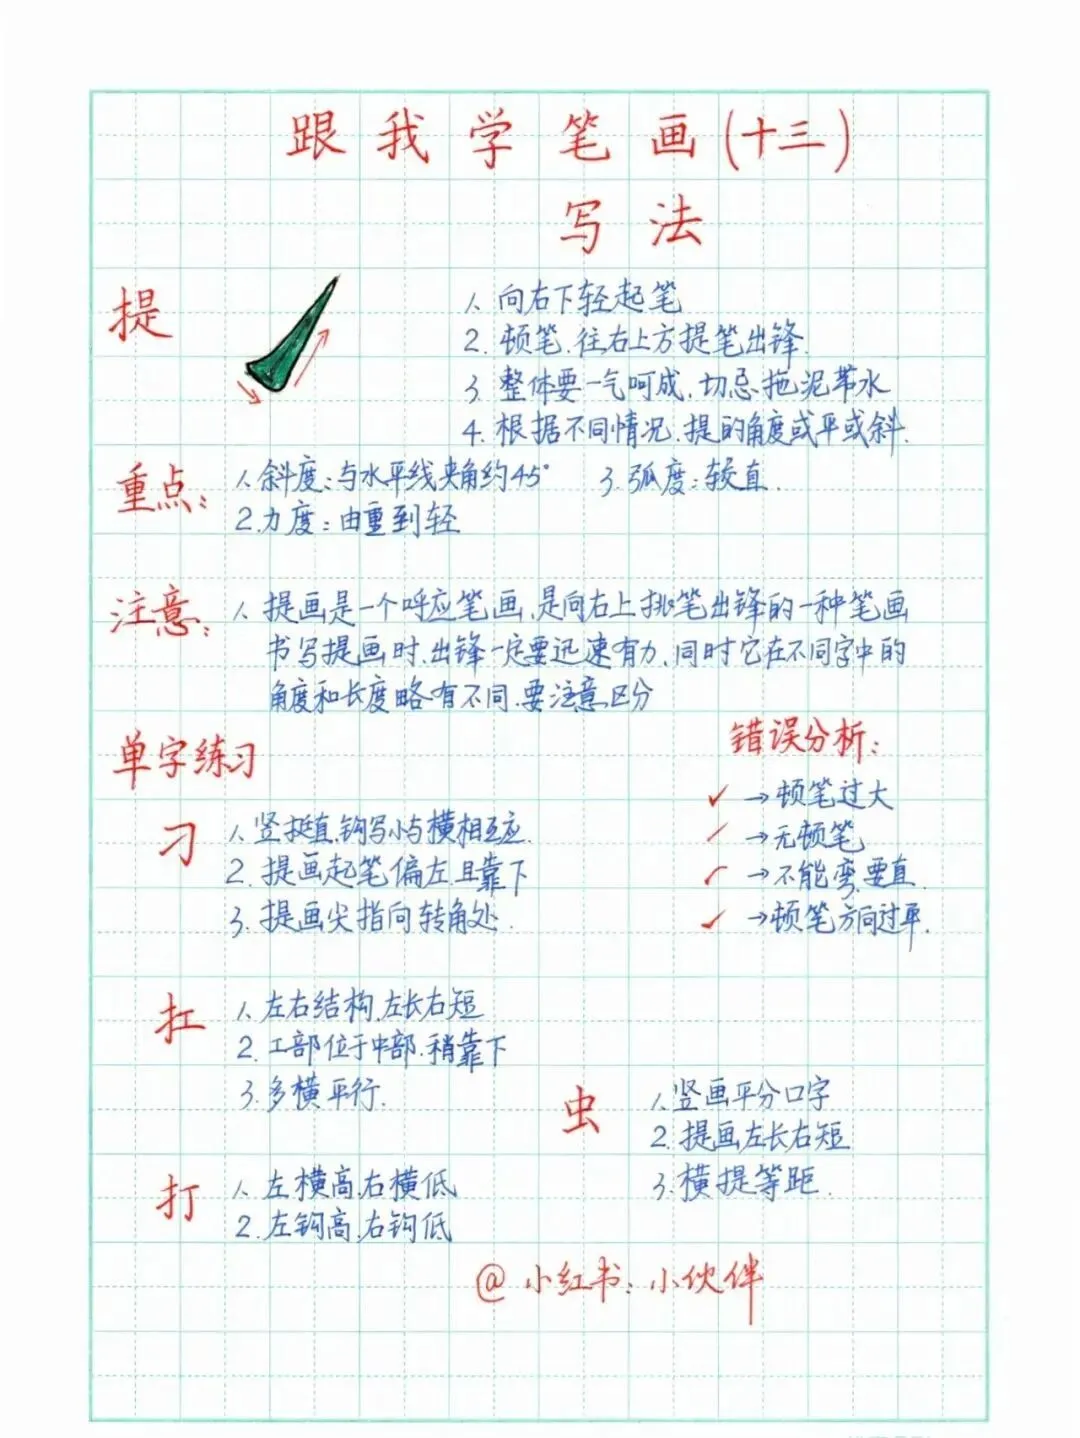 跟我学笔画(十三)
写法
提
1. 向右下轻起笔
2. 顿笔.往右上方提笔出锋.
3. 整体要一气呵成,切忌拖泥带水
4. 根据不同情况.提的角度或平或斜.
重点:
1. 斜度:与水平线夹角约45°
3. 弧度:较直.
2. 力度:由重到轻
注意:
1. 提画是一个呼应笔画.是向右上挑笔出锋的一种笔画
书写提画时.出锋一定要迅速有力.同时它在不同字中的
角度和长度略有不同.要注意区分
单字练习
刁
1. 竖挺直.钩写小与横相互应.
2. 提画起笔偏左.且靠下
3. 提画尖指向转角处.
错误分析:
→顿笔过大
→无顿笔
→不能弯.要直.
→顿笔方向过平.
扛
1. 左右结构.左长右短
2. 工部位于中部.稍靠下
3. 多横平行.
虫
1. 竖画平分口字
2. 提画左长右短
3. 横提等距.
打
1. 左横高.右横低
2. 左钩高.右钩低
@小红书:小伙伴